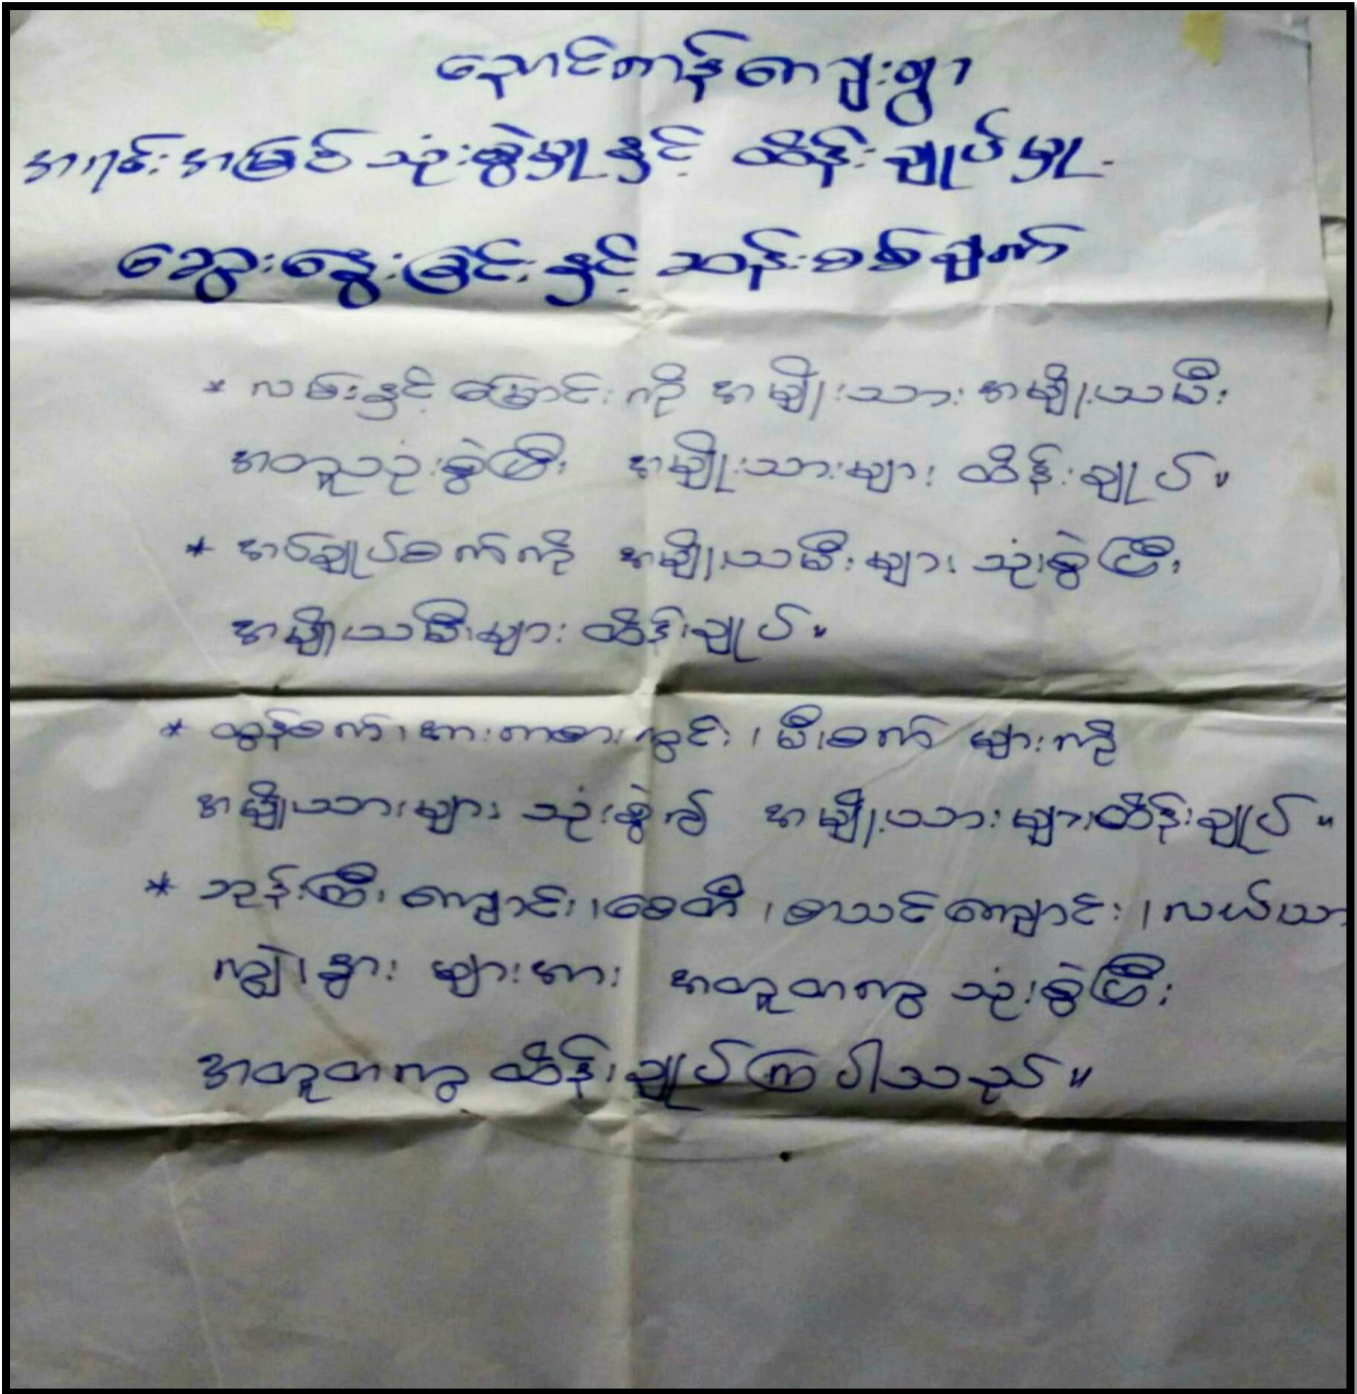 ညောင်တန်ကျေးရွာ
အရင်းအမြစ်သုံးစွဲမှုနှင့် ထိန်းချုပ်မှု
ဆွေးနွေးခြင်းနှင့် ဆန်းစစ်ချက်
* လမ်းနှင့်မြောင်းကို အမျိုးသားအမျိုးသမီး
အတူသုံးစွဲပြီး အမျိုးသားများ ထိန်းချုပ်။
* အပ်ချုပ်စက်ကို အမျိုးသမီးများ သုံးစွဲပြီး
အမျိုးသမီးများ ထိန်းချုပ်။
* ထွန်စက်၊ အားကစားကွင်း၊ မီးစက် များကို
အမျိုးသားများ သုံးစွဲ၍ အမျိုးသားများထိန်းချုပ်။
* ဘုန်းကြီးကျောင်း၊ စေတီ၊ စာသင်ကျောင်း၊ လယ်ယာ
ကျွဲ၊ နွား များအား အတူတကွ သုံးစွဲပြီး
အတူတကွ ထိန်းချုပ်ကြပါသည်။